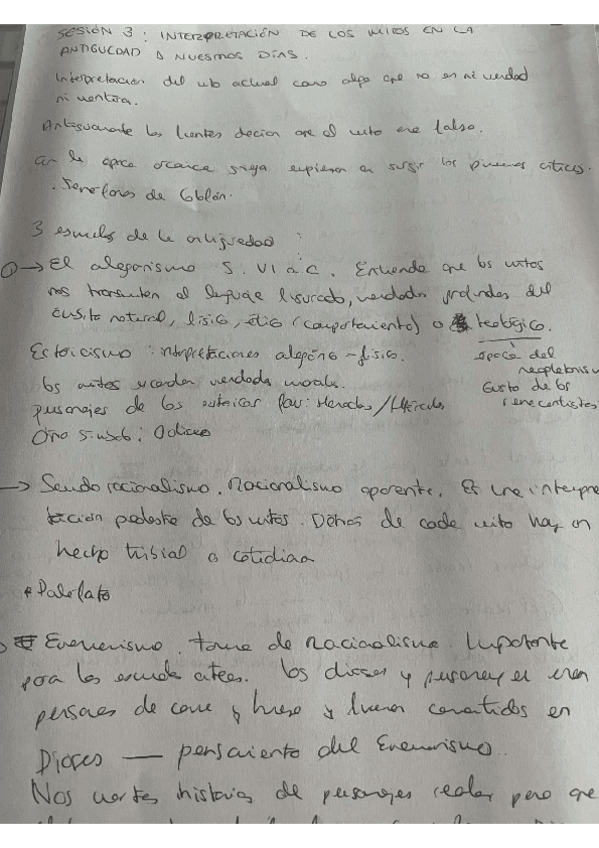 SESIÓN 3: INTERPRETACIÓN DE LOS MITOS EN LA
ANTIGUEDAD A NUESTROS DÍAS.
Interpretacion del mito actual como algo que no es ni verdad
ni mentira.
Antiguamente las fuentes decian que el mito era falso.
en la epoca arcaica griega empiezan a surgir las primeras criticas.
. Jenofanes de Colofón.
3 escuelas de la antiguedad :
① → El alegorismo S. VI a.C. Entiende que los mitos
nos transmiten al lenguaje figurado, verdades profundas del
ámbito natural, físico, ético (comportamiento) o teológico.
Estoicismo: interpretaciones alegóricо-físico.
epoca del
neoplatonismo
Gusto de los
renacentistas
los mitos esconden verdades morales.
personajes de los estoicos fav: Heracles/Hércules
Otro simbolo: Odiseo
→ Seudoracionalismo. Racionalismo aparente. Es una interpre
tación pedestre de los mitos. Detras de cada mito hay un
hecho trivial o cotidiano
* Palefato
→ Evemerismo. forma de racionalismo. Importante
para las escuelas ateas. Los dioses y personajes eran
personajes de carne y hueso y fueron convertidos en
Dioses — pensamiento del Evemerismo.
Nos cuentan historias de personajes reales pero que